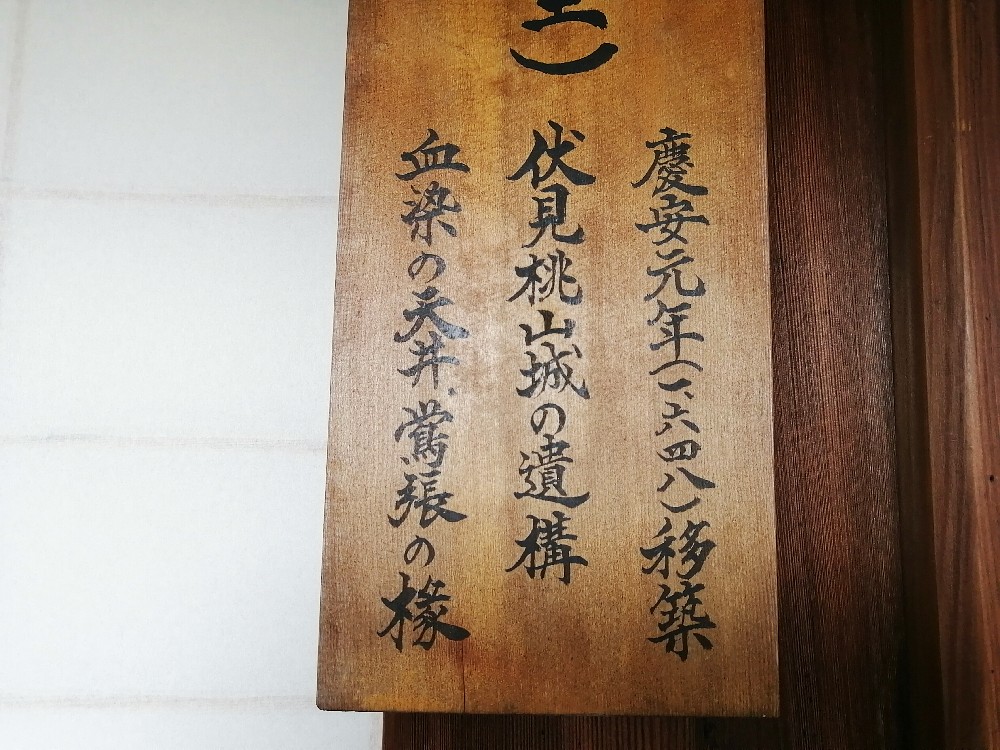 慶安元年(一、六四八)移築
伏見桃山城の遺構
血染の天井、鴬張の椽